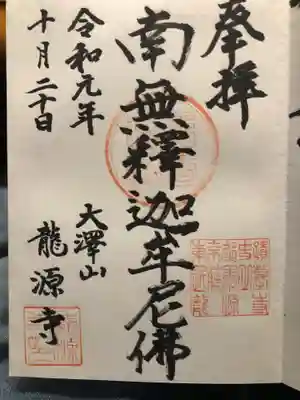 奉拝
南無釋迦牟尼佛
令和元年
十月二十日
大澤山
龍源寺